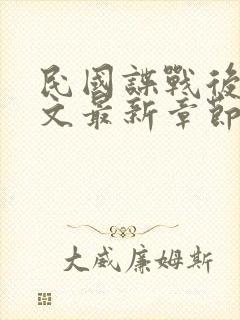 民國諜戰後
文最新章節
大威廉姆斯